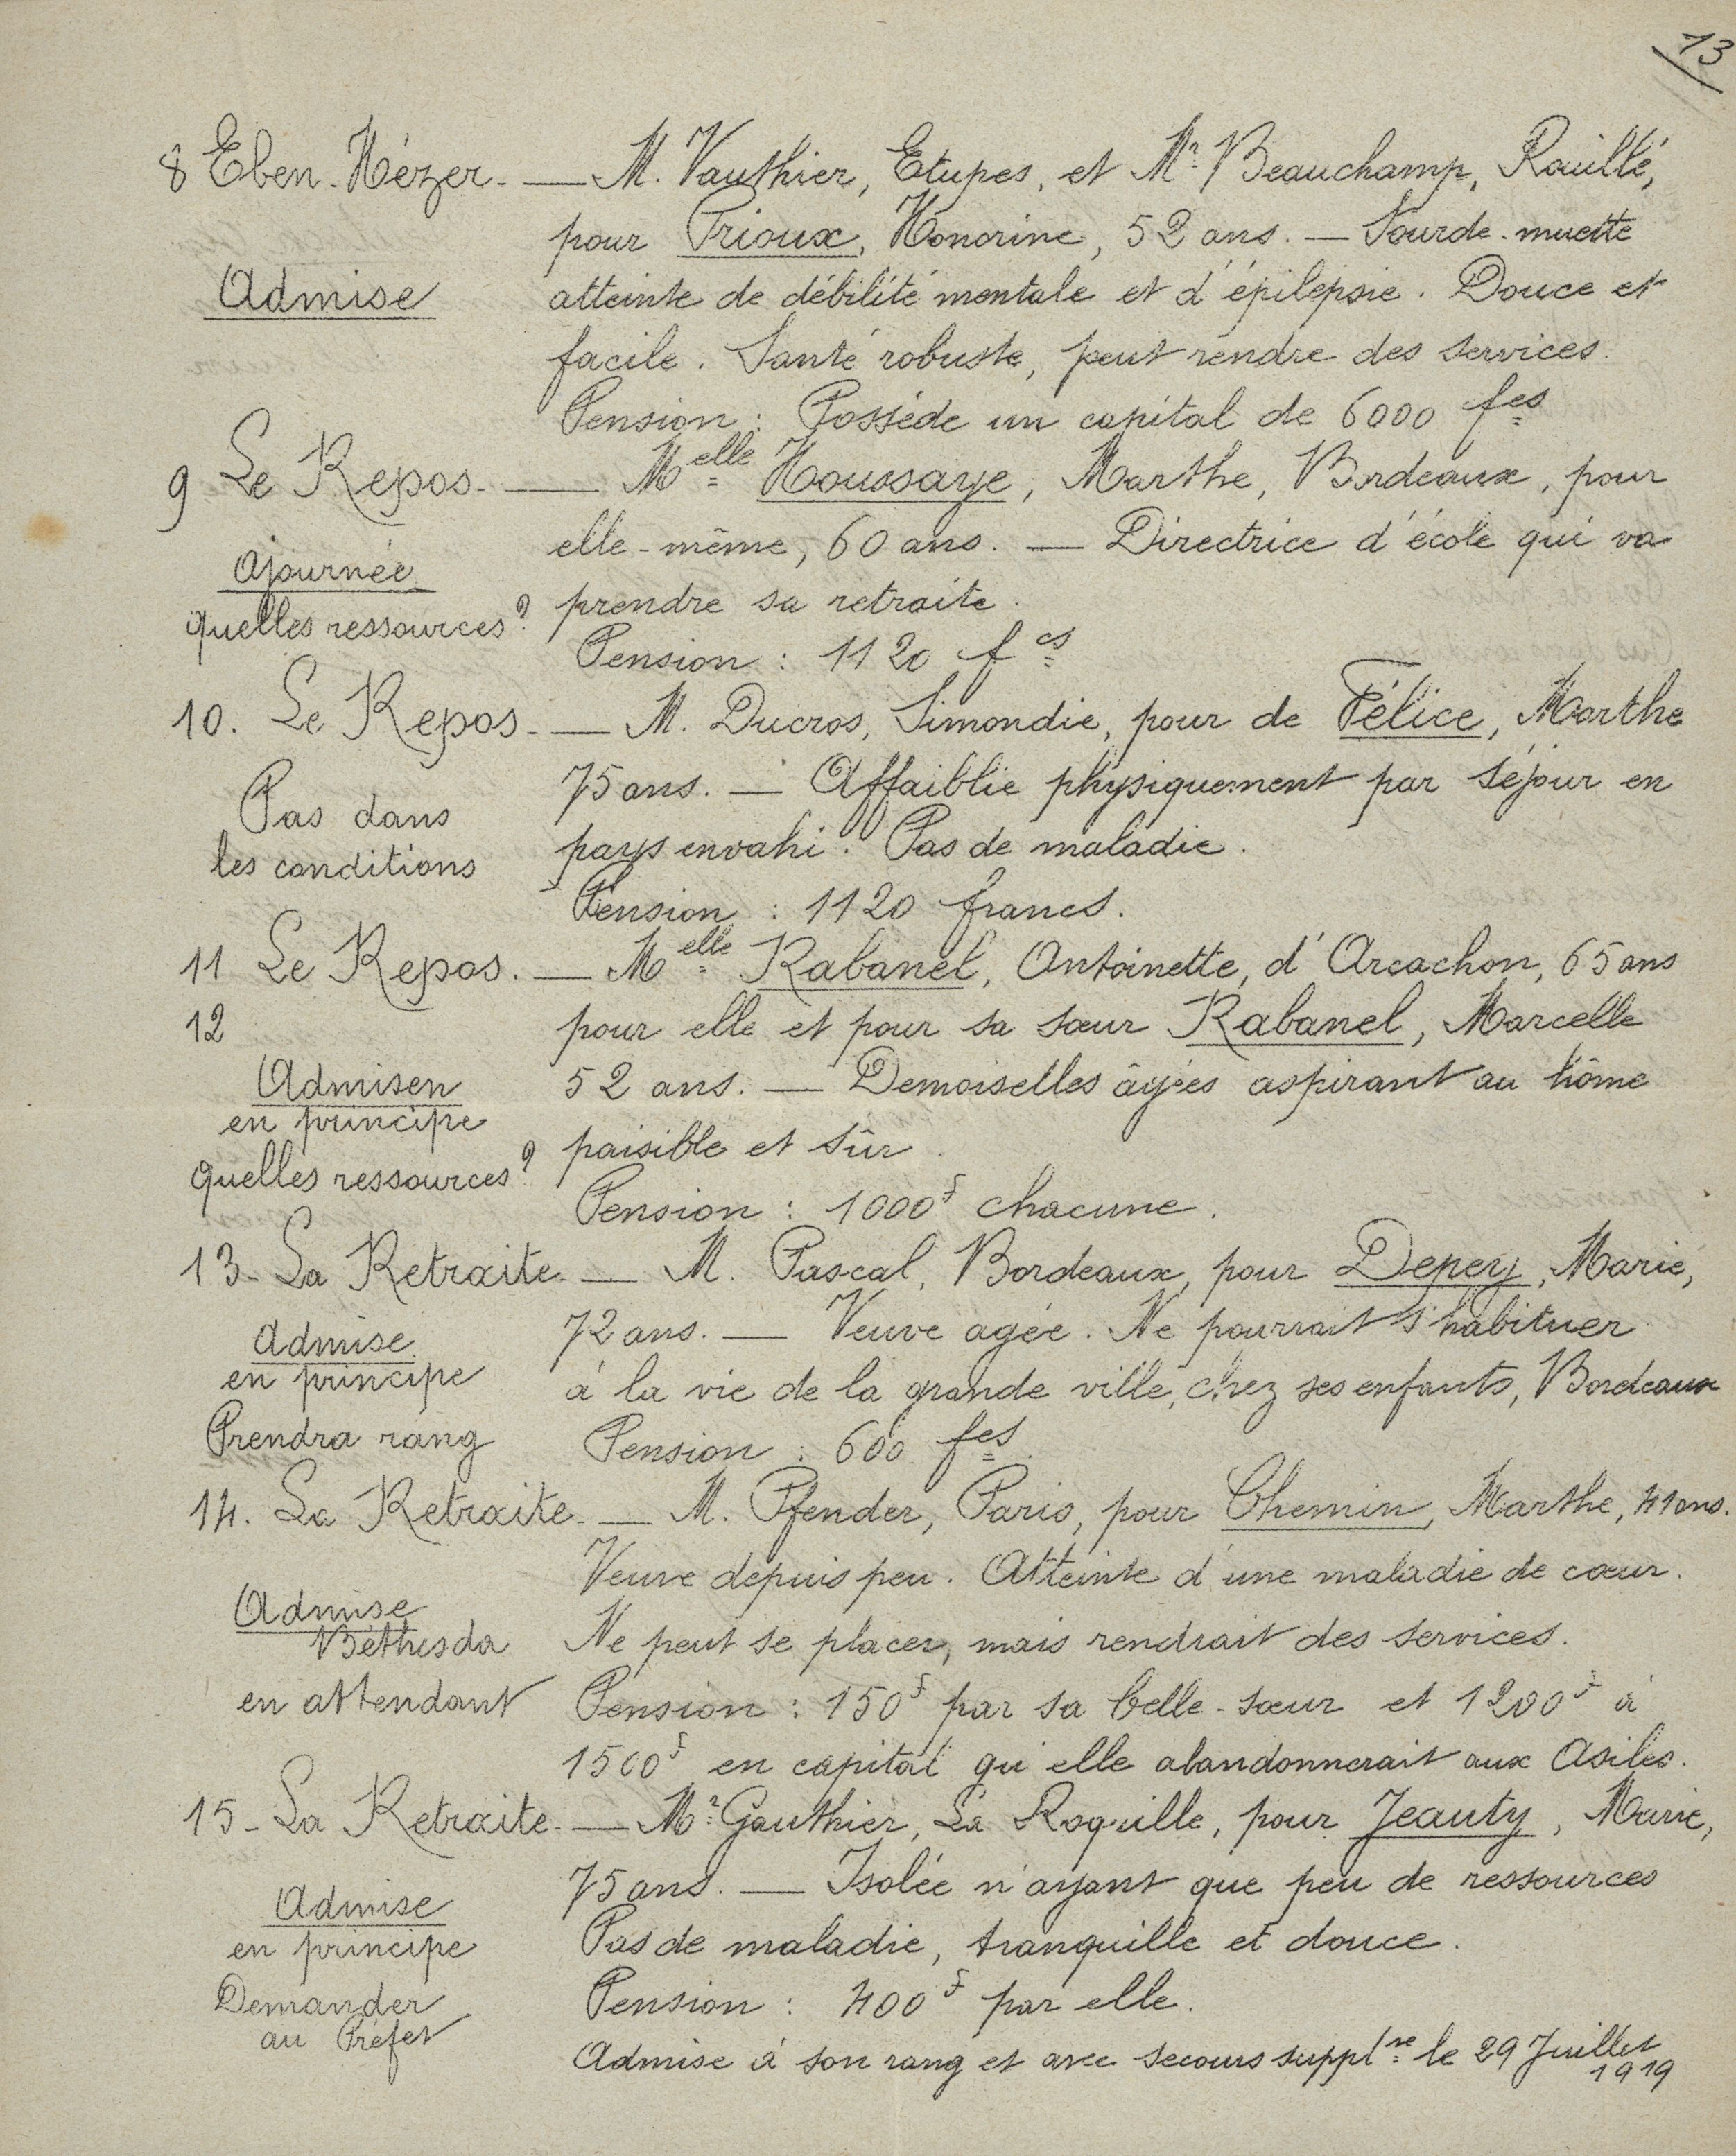 13
8 Eben-Hézer. — M. Vauthier, Etupes, et Mr. Beauchamp, Rouillé,
pour Prioux, Honorine, 52 ans. — Sourde-muette
Admise
atteinte de débilité mentale et d'épilepsie. Douce et
facile. Santé robuste, peut rendre des services.
Pension : Possède un capital de 6000 fcs
9 Le Repos. — Melle Houssaye, Marthe, Bordeaux, pour
elle-même, 60 ans. — Directrice d'école qui va
Ajournée
prendre sa retraite.
quelles ressources?
Pension : 1120 fcs
10. Le Repos. — M. Ducros, Simondie, pour de Félice, Marthe
75 ans. — Affaiblie physiquement par séjour en
Pas dans
pays envahi. Pas de maladie.
les conditions
Pension : 1120 francs.
11 Le Repos. — Melle Rabanel, Antoinette, d'Arcachon, 65 ans
12
pour elle et pour sa sœur Rabanel, Marcelle
Admisen
52 ans. — Demoiselles âgées aspirant au hôme
en principe
paisible et sûr.
quelles ressources?
Pension : 1000f chacune.
13- La Retraite. — M. Pascal, Bordeaux, pour Depey, Marie,
Admise
72 ans. — Veuve agée. Ne pourrait s'habituer
en principe
à la vie de la grande ville, chez ses enfants, Bordeaux
Prendra rang
Pension : 600 fcs.
14. La Retraite. — M. Pfender, Paris, pour Chemin, Marthe, 41 ans.
Veuve depuis peu. Atteinte d'une maladie de cœur.
Admise
Béthesda
Ne peut se placer, mais rendrait des services.
en attendant
Pension : 150f par sa belle-sœur et 1200f à
1500f en capital qu'elle abandonnerait aux Asiles.
15- La Retraite. — Mr. Gauthier, La Roquille, pour Jeauty, Marie,
75 ans. — Isolée n'ayant que peu de ressources
Admise
en principe
Pas de maladie, tranquille et douce.
Demander
Pension : 400f par elle.
au Préfet
Admise à son rang et avec secours supplre le 29 Juillet
1919